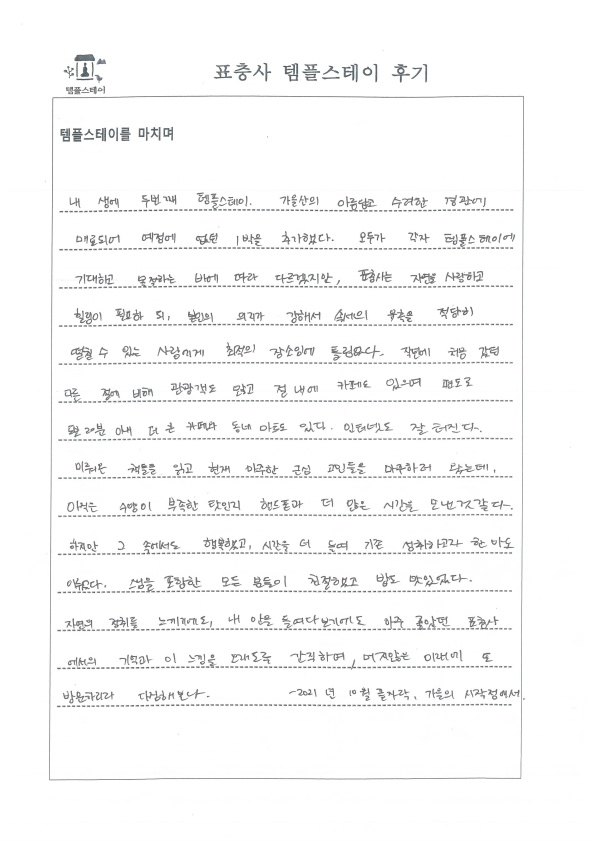 템플스테이
표충사 템플스테이 후기
템플스테이를 마치며
내 생에 두번째 템플스테이. 가을산의 아름답고 수려한 경관에
매료되어 예정에 없던 1박을 추가했다. 모두가 각자 템플스테이에
기대하고 걱정하는 바에 따라 다르겠지만, 표충사는 자연을 사랑하고
힐링이 필요하 되, 본인의 의지가 강해서 속세의 유혹을 적당히
떨칠 수 있는 사람에게 최적의 장소임에 틀림없다. 작년에 처음 갔던
다른 절에 비해 관광객도 많고 절 내에 카페도 있으며 편도로
도보 20분 이내 더 큰 카페나 동네 마트도 있다. 인터넷도 잘 터진다.
미뤄둔 책들을 읽고 현재 마주한 근심 고민들을 마무하러 왔는데,
아직은 수양이 부족한 탓인지 핸드폰과 더 많은 시간을 보낸것 같다.
하지만 그 중에서도 행복했고, 시간을 더 들여 기존 성취하고자 한 바도
이뤘다. 스님을 포함한 모든 분들이 친절했고 밥도 맛있었다.
자연의 정취를 느끼기에도, 내 안을 들여다보기에도 아주 좋았던 표충사
에서의 기억과 이 느낌을 오래도록 간직하며, 머지않은 미래에 또
방문하리라 다짐해본다. -2021년 10월 끝자락, 가을의 시작점에서.